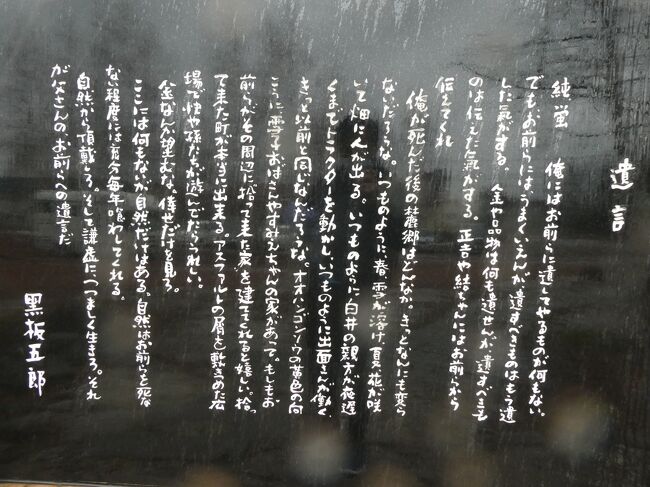 遺言
純 蛍　俺にはお前らに遺してやるものが何もない。
でもお前らには うまくいえんが遺すべきものはもう遺
した気がする。　金や品物は何も遺せんが、遺すべきも
のは伝えた気がする。正吉や結ちゃんにはお前らから
伝えてくれ
俺が死んだ後の麓郷はどんなか。きっとなんにも変ら
ないだろうな。いつものように、春、雪が溶け、夏、花が咲
いて畑に人が出る。いつものように白井の親方が夜遅
くまでトラクターを動かし、いつものように出面さんが働く。
きっと以前と同じなんだろうな。オオハンゴンソウの黄色の向
こうに 雪子おばさんやすみえちゃんの家があって。もしもお
前らがその周辺に"拾って来た家"を建ててくれると嬉しい。拾っ
て来た町が本当に出来る。アスファルトの屑を敷きつめた広
場で快や孫たちが遊んでたらうれしい。
金なんか望むな。倖せだけを見ろ。
ここには何もないが自然だけはある。自然はお前らを死な
ない程度には充分毎年喰わしてくれる。
自然から頂戴しろ。そして謙虚に、つつましく生きろ。それ
が父さんの、お前らへの遺言だ
黒板五郎